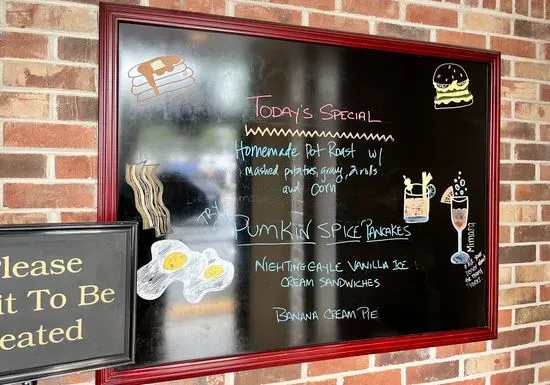 Today's Special
Homemade Pot Roast w/
mashed potatoes, gravy, 2 rolls
and corn
TRY
Pumkin Spice Pancakes
Nightingayle Vanilla Ice
Cream Sandwiches
Banana Cream Pie
Mimosa
Please
it To Be
eated